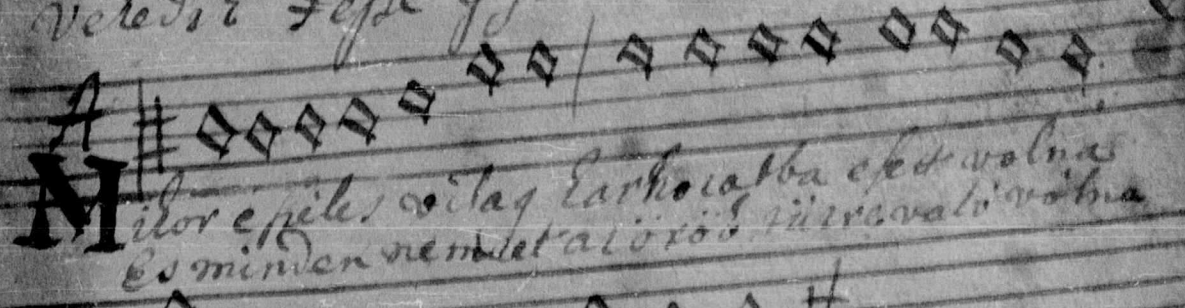 A
Mikor e széles világ karhozatba esset volna
Es minden nemzet az örök tűzre valo volna